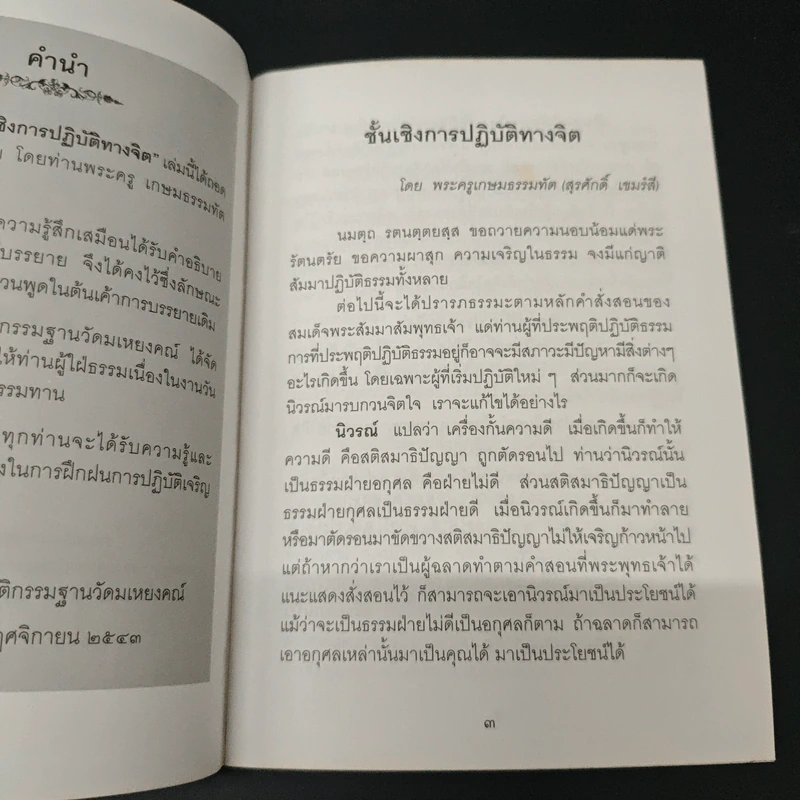 คำนำ
ชิงการปฏิบัติทางจิต" เล่มนี้ได้ถอด
โดยท่านพระครู เกษมธรรมทัต
ความรู้สึกเสมือนได้รับคำอธิบาย
บรรยาย จึงได้คงไว้ซึ่งลักษณะ
วนพูดในต้นเค้าการบรรยายเดิม
กรรมฐานวัดมเหยงคณ์ ได้จัด
ให้ท่านผู้ใฝ่ธรรมเนื่องในงานวัน
รรมทาน
ทุกท่านจะได้รับความรู้และ
งในการฝึกฝนการปฏิบัติเจริญ
ติกรรมฐานวัดมเหยงคณ์
ฤศจิกายน ๒๕๔๓
ชั้นเชิงการปฏิบัติทางจิต
โดย พระครูเกษมธรรมทัต (สุรศักดิ์ เขมรํสี)
นมตฺถุ รตนตฺตยสฺส ขอถวายความนอบน้อมแด่พระ
รัตนตรัย ขอความผาสุก ความเจริญในธรรม จงมีแก่ญาติ
สัมมาปฏิบัติธรรมทั้งหลาย
ต่อไปนี้จะได้ปรารภธรรมะตามหลักคำสั่งสอนของ
สมเด็จพระสัมมาสัมพุทธเจ้า แด่ท่านผู้ที่ประพฤติปฏิบัติธรรม
การที่ประพฤติปฏิบัติธรรมอยู่ก็อาจจะมีสภาวะมีปัญหามีสิ่งต่างๆ
อะไรเกิดขึ้น โดยเฉพาะผู้ที่เริ่มปฏิบัติใหม่ ๆ ส่วนมากก็จะเกิด
นิวรณ์มารบกวนจิตใจ เราจะแก้ไขได้อย่างไร
นิวรณ์ แปลว่า เครื่องกั้นความดี เมื่อเกิดขึ้นก็ทำให้
ความดี คือสติสมาธิปัญญา ถูกตัดรอนไป ท่านว่านิวรณ์นั้น
เป็นธรรมฝ่ายอกุศล คือฝ่ายไม่ดี ส่วนสติสมาธิปัญญาเป็น
ธรรมฝ่ายกุศลเป็นธรรมฝ่ายดี เมื่อนิวรณ์เกิดขึ้นก็มาทำลาย
หรือมาตัดรอนมาขัดขวางสติสมาธิปัญญาไม่ให้เจริญก้าวหน้าไป
แต่ถ้าหากว่าเราเป็นผู้ฉลาดทำตามคำสอนที่พระพุทธเจ้าได้
แนะแสดงสั่งสอนไว้ ก็สามารถจะเอานิวรณ์มาเป็นประโยชน์ได้
แม้ว่าจะเป็นธรรมฝ่ายไม่ดีเป็นอกุศลก็ตาม ถ้าฉลาดก็สามารถ
เอาอกุศลเหล่านั้นมาเป็นคุณได้ มาเป็นประโยชน์ได้
๓